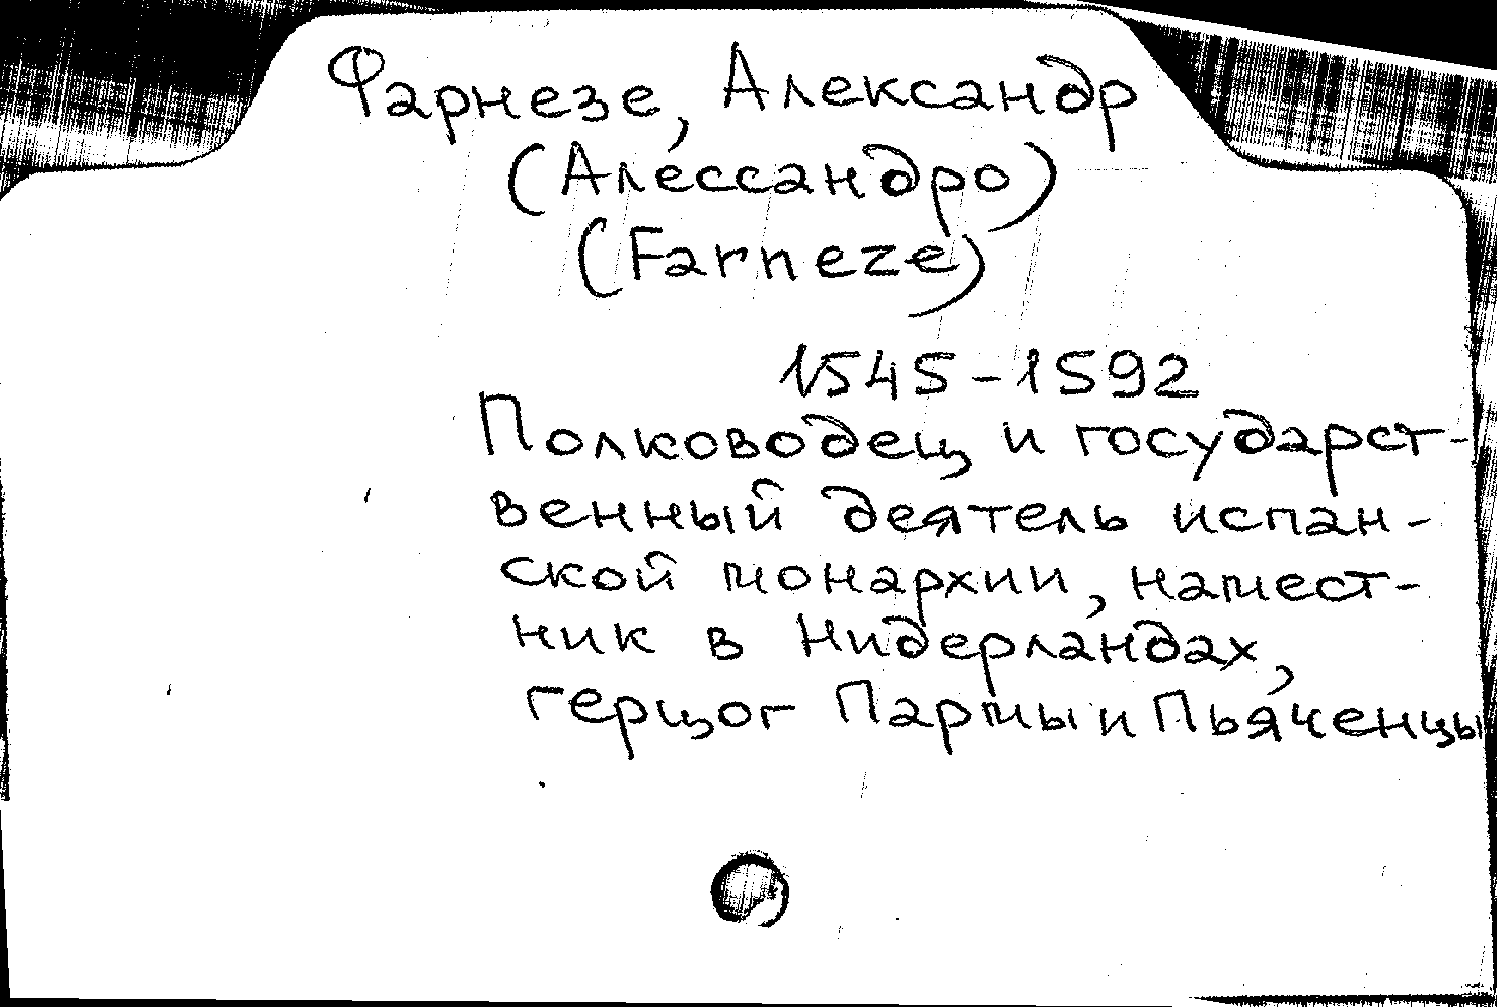 Фарнезе, Александр
(Алессандро)
(Farneze)
1545-1592
Полководец и государст-
венный деятель испан-
ской монархии, намест-
ник в Нидерландах,
герцог Пармы и Пьяченцы